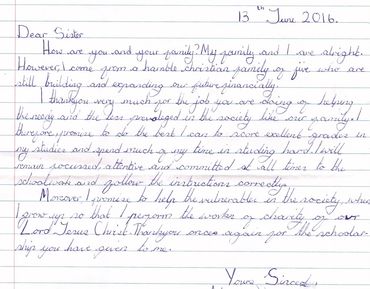 13th June 2016.
Dear Sister
How are you and your family? My family and I are alright.
However, I come from a humble christian family of five who are
still building and expanding our future financially.
I thankyou very much for the job you are doing of helping
the needy and the less privileged in the society like our family. I
therefore promise to do the best I can to score exellent grades in
my studies and spend much of my time in studing hard. I will
remain focussed, attentive and committed at all times to the
schoolwork and follow the instructions correctly.
Moreover I promise to help the vulnerables in the society, when
I grow up so that I perform the works of charity of our
Lord Jesus Christ. Thankyou once again for the scholar-
ship you have given to me.
Yours Sincerel